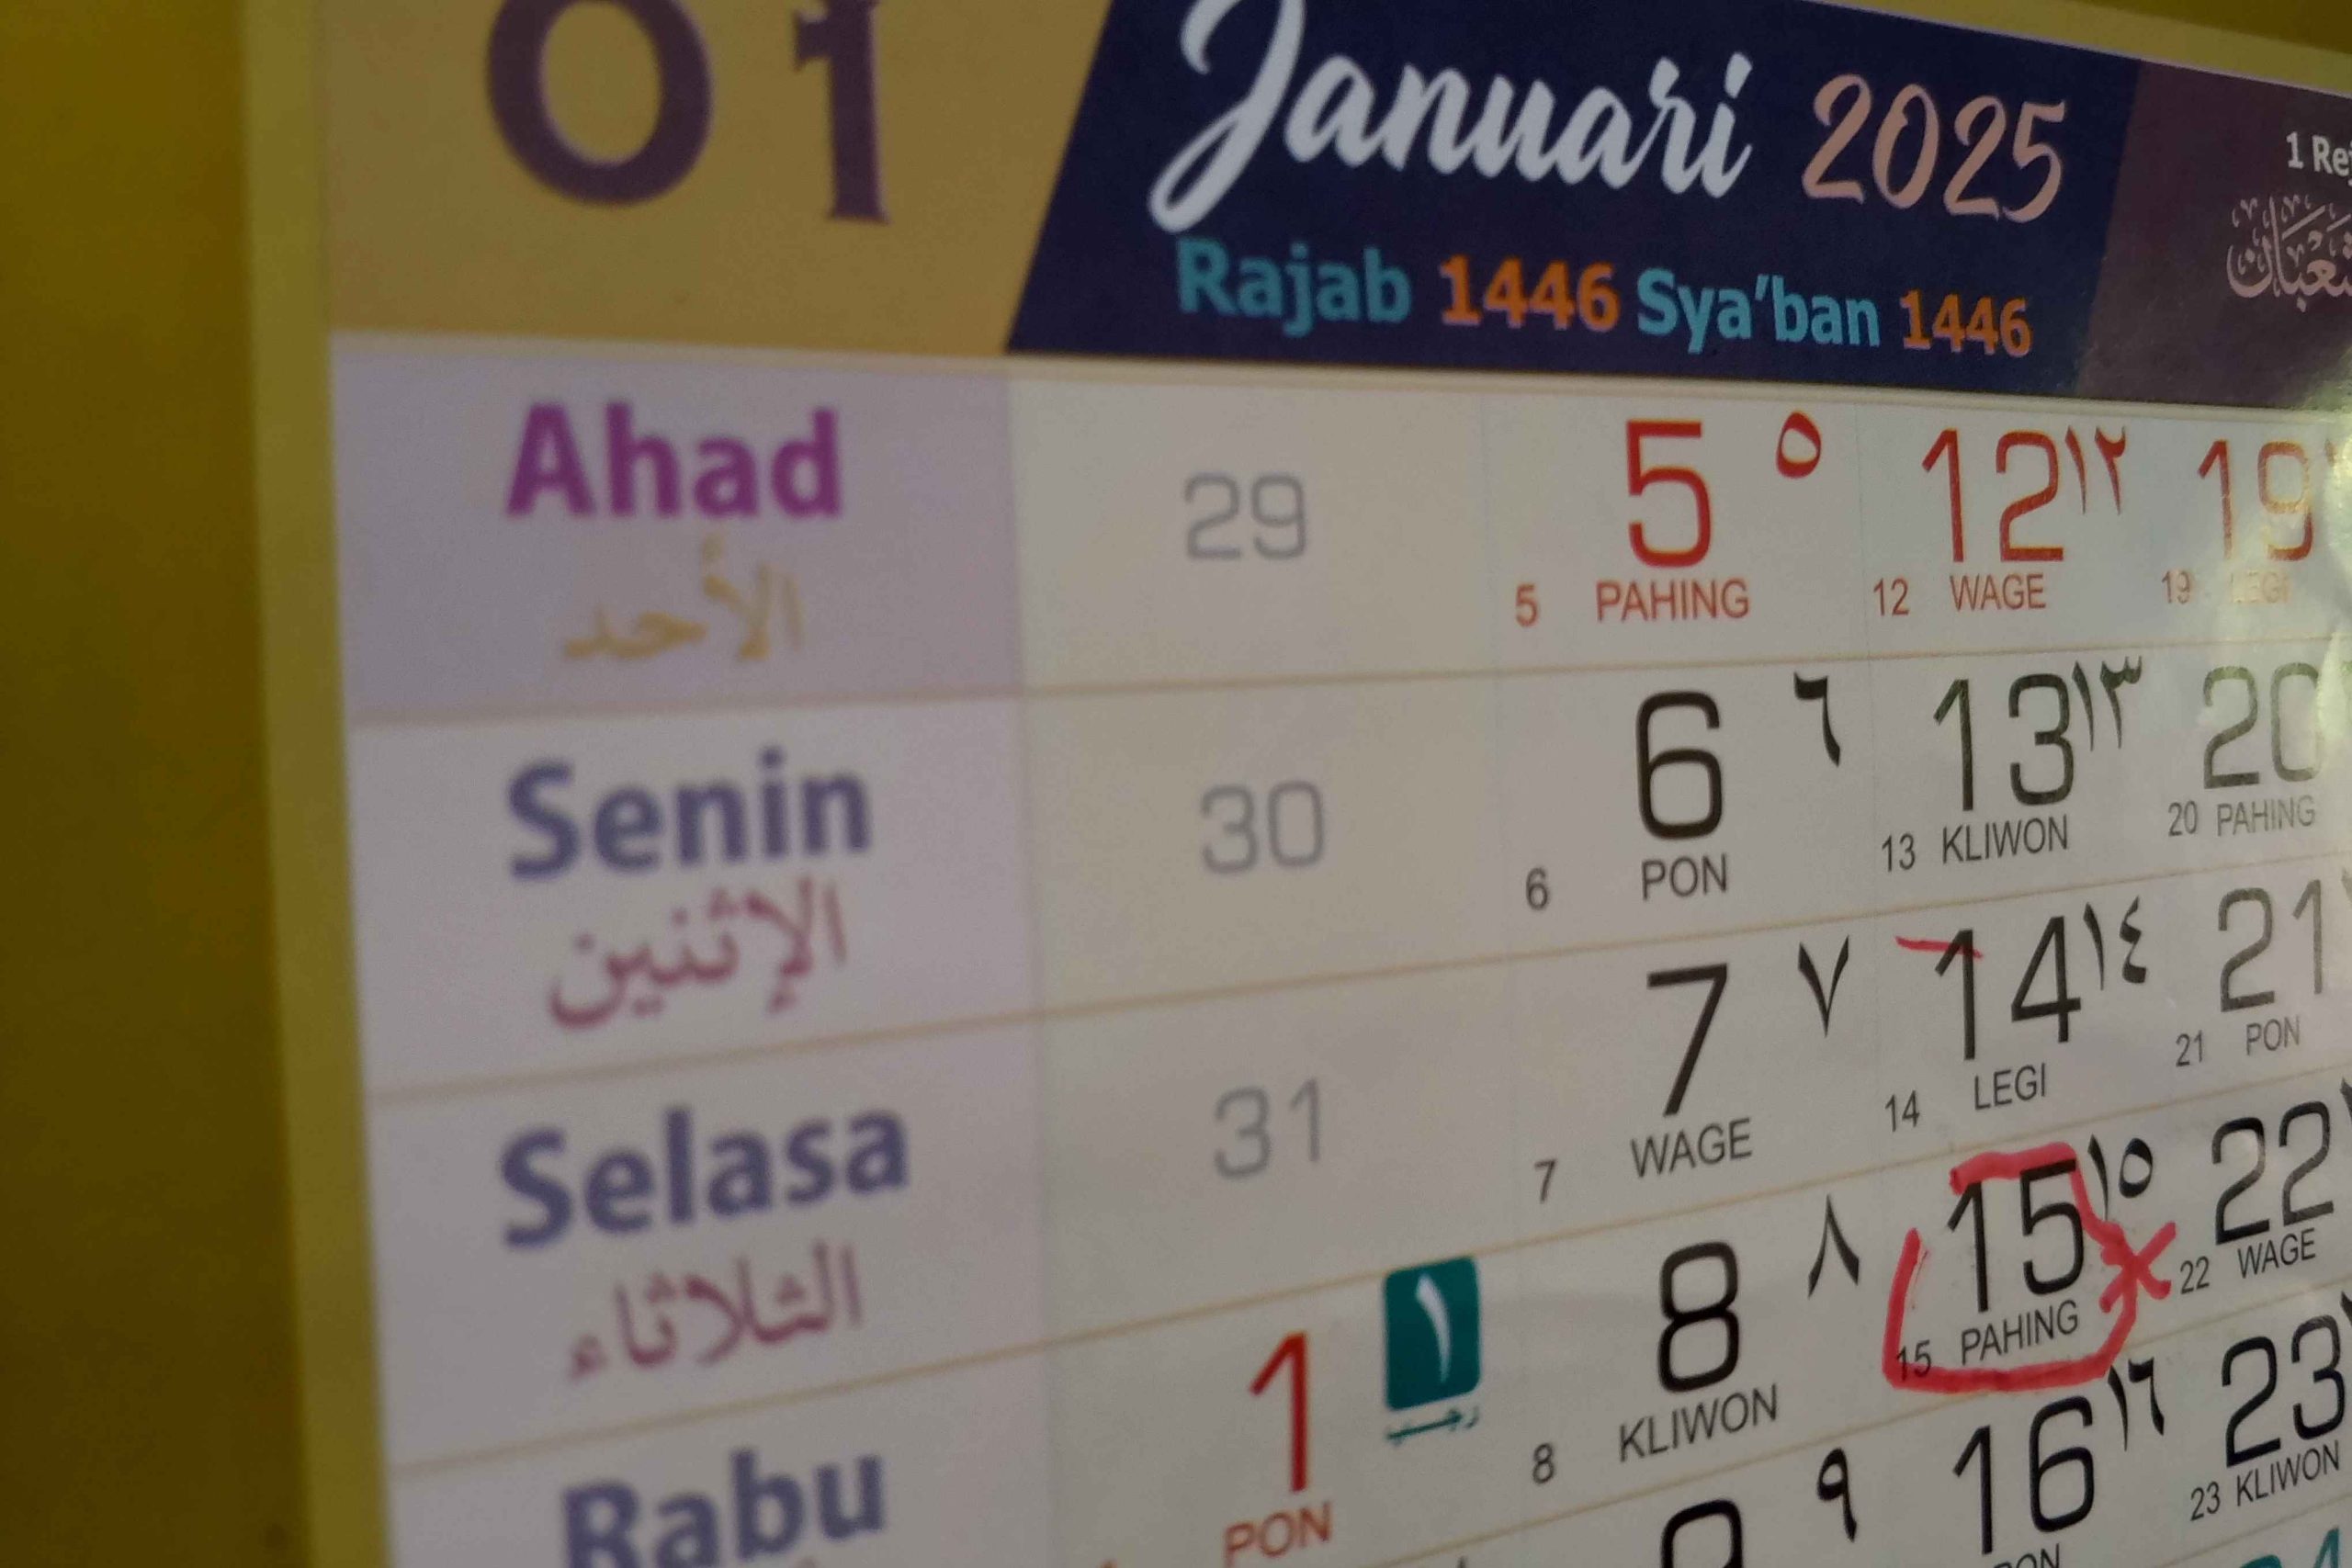 01
Januari 2025
Rajab 1446 Sya'ban 1446
Ahad
الأحد
29
5 ٥
5 PAHING
12 ١٢
12 WAGE
19
19 LEGI
Senin
الإثنين
30
6 ٦
6 PON
13 ١٣
13 KLIWON
20
20 PAHING
Selasa
الثلاثاء
31
7 ٧
7 WAGE
14 ١٤
14 LEGI
21
21 PON
Rabu
1 ١
رجب
PON
8 ٨
8 KLIWON
15 ١٥
15 PAHING
22
22 WAGE
9 ٩
16 ١٦
PON
23
23 KLIWON